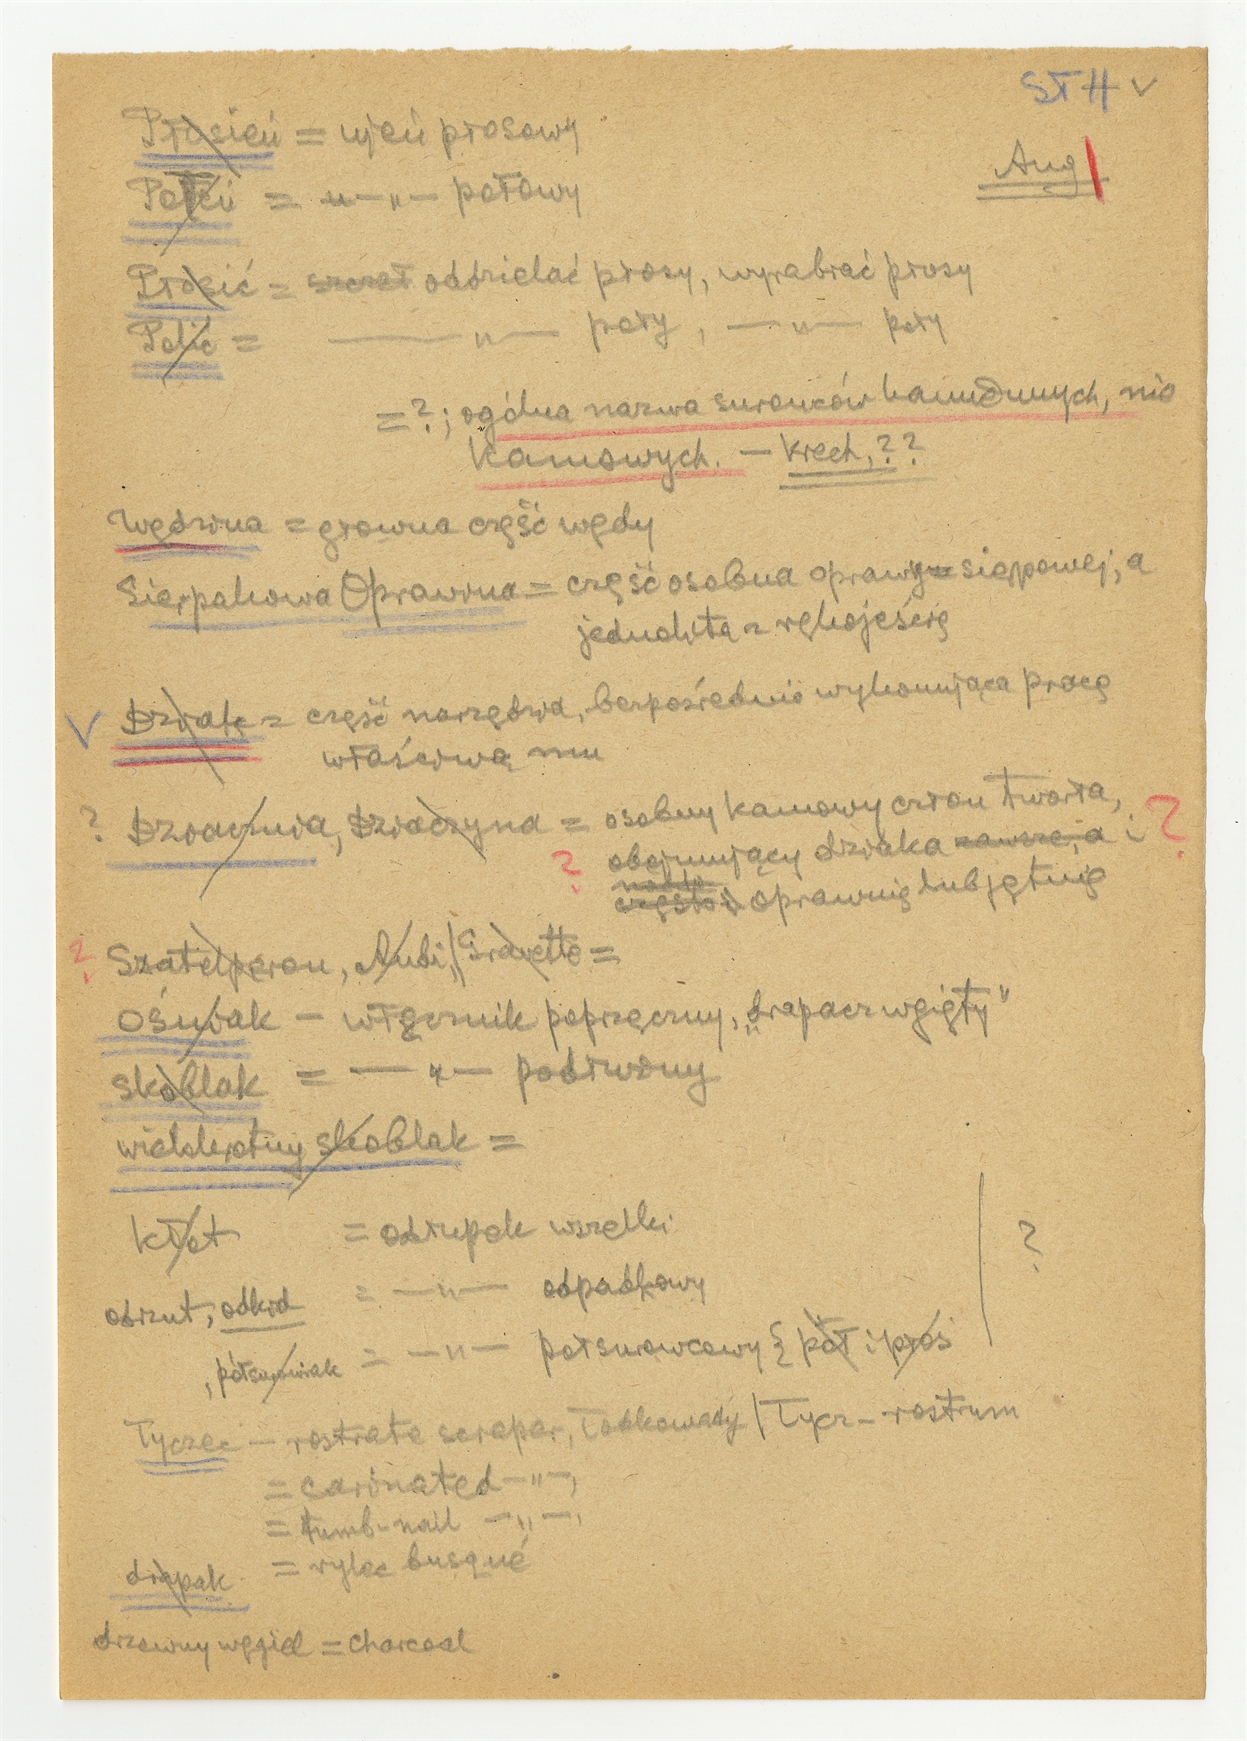 STH v
Aug
Płosień = wjeń płosowy
Połeń = —„— połowy
Płosić = oddzielać płosy, wyrabiać płosy
Polić = —„— poły, —„— poły
= ?; ogólna nazwa surowców kamiennych, nie
kamowych. — krech, ??
Wędzina = głowna część wędy
Sierpakowa Oprawina = część osobna oprawy sierpowej, a
jednolita z rękojeścią
V Działek = część narzędzia, bezpośrednio wykonująca pracę
właściwą mu
? Działcznia, Działczyna = osobny kamowy człon tworła,
? obejmujący działka zawsze, a i ?
często oprawnię lub jętnię
? Szatelperon, Aubi, Gravette =
Ośniak – włęcznik poprzeczny, „drapacz wgięty"
skoblak = —„— podłużny
wielokrotny skoblak =
kłot = odłupek wszelki
odrzut, odkid = —„— odpadkowy ?
, półsurowiak = —„— półsurowcowy { pół i płoś
Tyczec — rostrate scraper, łódkowaty / Tycz – rostrum
= carinated —„—,
= tumb-nail —„—,
drapak = rylec busqué
drzewny węgiel = charcoal